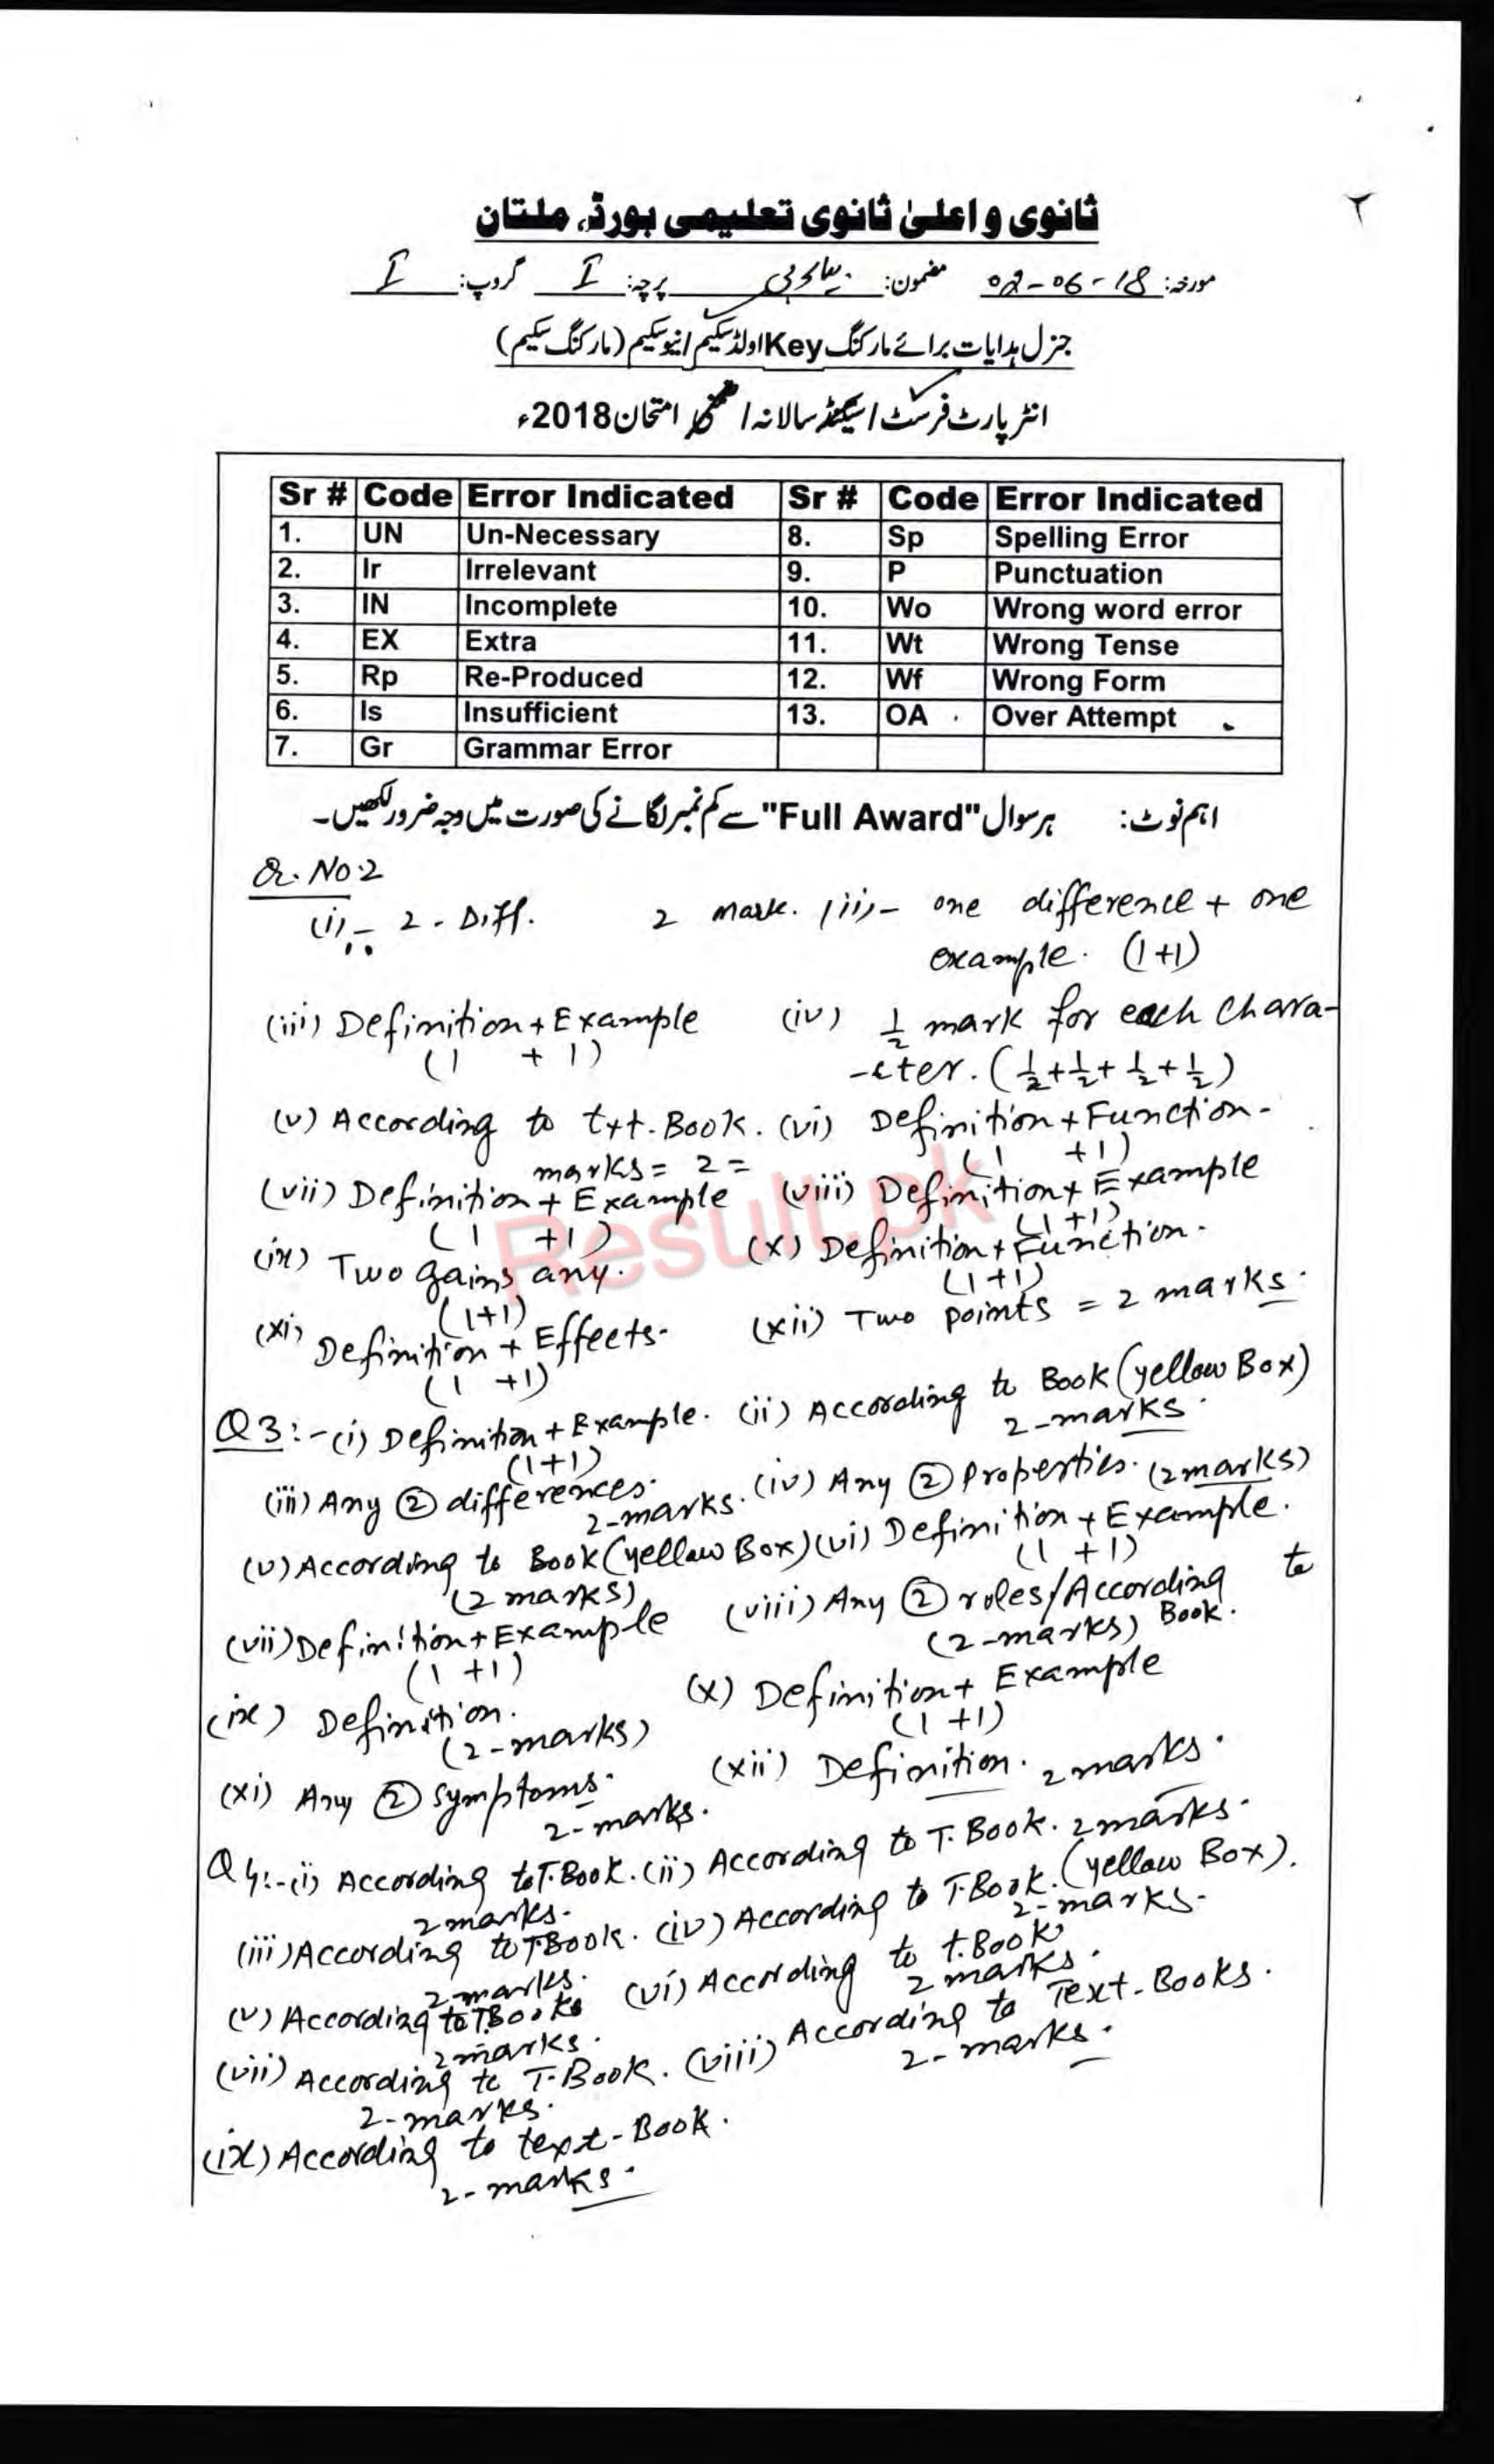 ثانوی و اعلیٰ ثانوی تعلیمی بورڈ، ملتان
مورخہ: 02-06-18 مضمون: بیالوجی پرچہ: I گروپ: I
جنرل ہدایات برائے مارکنگ Key اولڈ سکیم / نیو سکیم (مارکنگ سکیم)
انٹر پارٹ فرسٹ / سیکنڈ سالانہ / امتحان 2018ء
Sr # Code Error Indicated Sr # Code Error Indicated
1. UN Un-Necessary 8. Sp Spelling Error
2. Ir Irrelevant 9. P Punctuation
3. IN Incomplete 10. Wo Wrong word error
4. EX Extra 11. Wt Wrong Tense
5. Rp Re-Produced 12. Wf Wrong Form
6. Is Insufficient 13. OA Over Attempt
7. Gr Grammar Error
اہم نوٹ: ہر سوال "Full Award" سے کم نمبر لگانے کی صورت میں وجہ ضرور لکھیں۔
Q. No.2
(i):- 2 - Diff. 2 mark. (ii)- one difference + one
example. (1+1)
(iii) Definition + Example (iv) 1/2 mark for each chara-
(1 + 1) -cter. (1/2+1/2+1/2+1/2)
(v) According to txt. Book. (vi) Definition + Function-
marks = 2 = (1 +1)
(vii) Definition + Example (viii) Definition + Example
(1 +1) (1 +1)
(ix) Two gains any. (x) Definition + Function.
(1+1) (1+1)
(xi) Definition + Effects. (xii) Two points = 2 marks.
(1 +1)
Q3:- (i) Definition + Example. (ii) According to Book (yellow Box)
(1+1) 2-marks.
(iii) Any ② differences. (iv) Any ② Properties. (2 marks)
2-marks.
(v) According to Book (yellow Box) (vi) Definition + Example.
(2 marks) (1 +1)
(vii) Definition + Example (viii) Any ② roles/According to
(1 +1) (2-marks) Book.
(ix) Definition. (x) Definition + Example
(2-marks) (1 +1)
(xi) Any ② symptoms. (xii) Definition. 2 marks.
2-marks.
Q4:- (i) According to T. Book. (ii) According to T. Book. 2 marks.
2 marks.
(iii) According to T.Book. (iv) According to T.Book. (yellow Box).
2-marks. 2-marks.
(v) According to T.Books (vi) According to t.Book
2 marks. 2 marks.
(vii) According to T.Book. (viii) According to Text-Books.
2-marks. 2-marks.
(ix) According to text-Book.
2-marks.
Result.pk